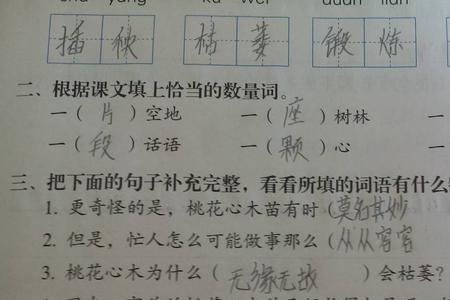 插秧 枯萎 锻炼
二、根据课文填上恰当的数量词。
一（片）空地 一（座）树林 一
一（段）话语 一（颗）心 一
三、把下面的句子补充完整，看看所填的词语有什么
1. 更奇怪的是，桃花心木苗有时（莫名其妙
2. 但是，忙人怎么可能做事那么（从从容容
3. 桃花心木为什么（无缘无故）会枯萎？